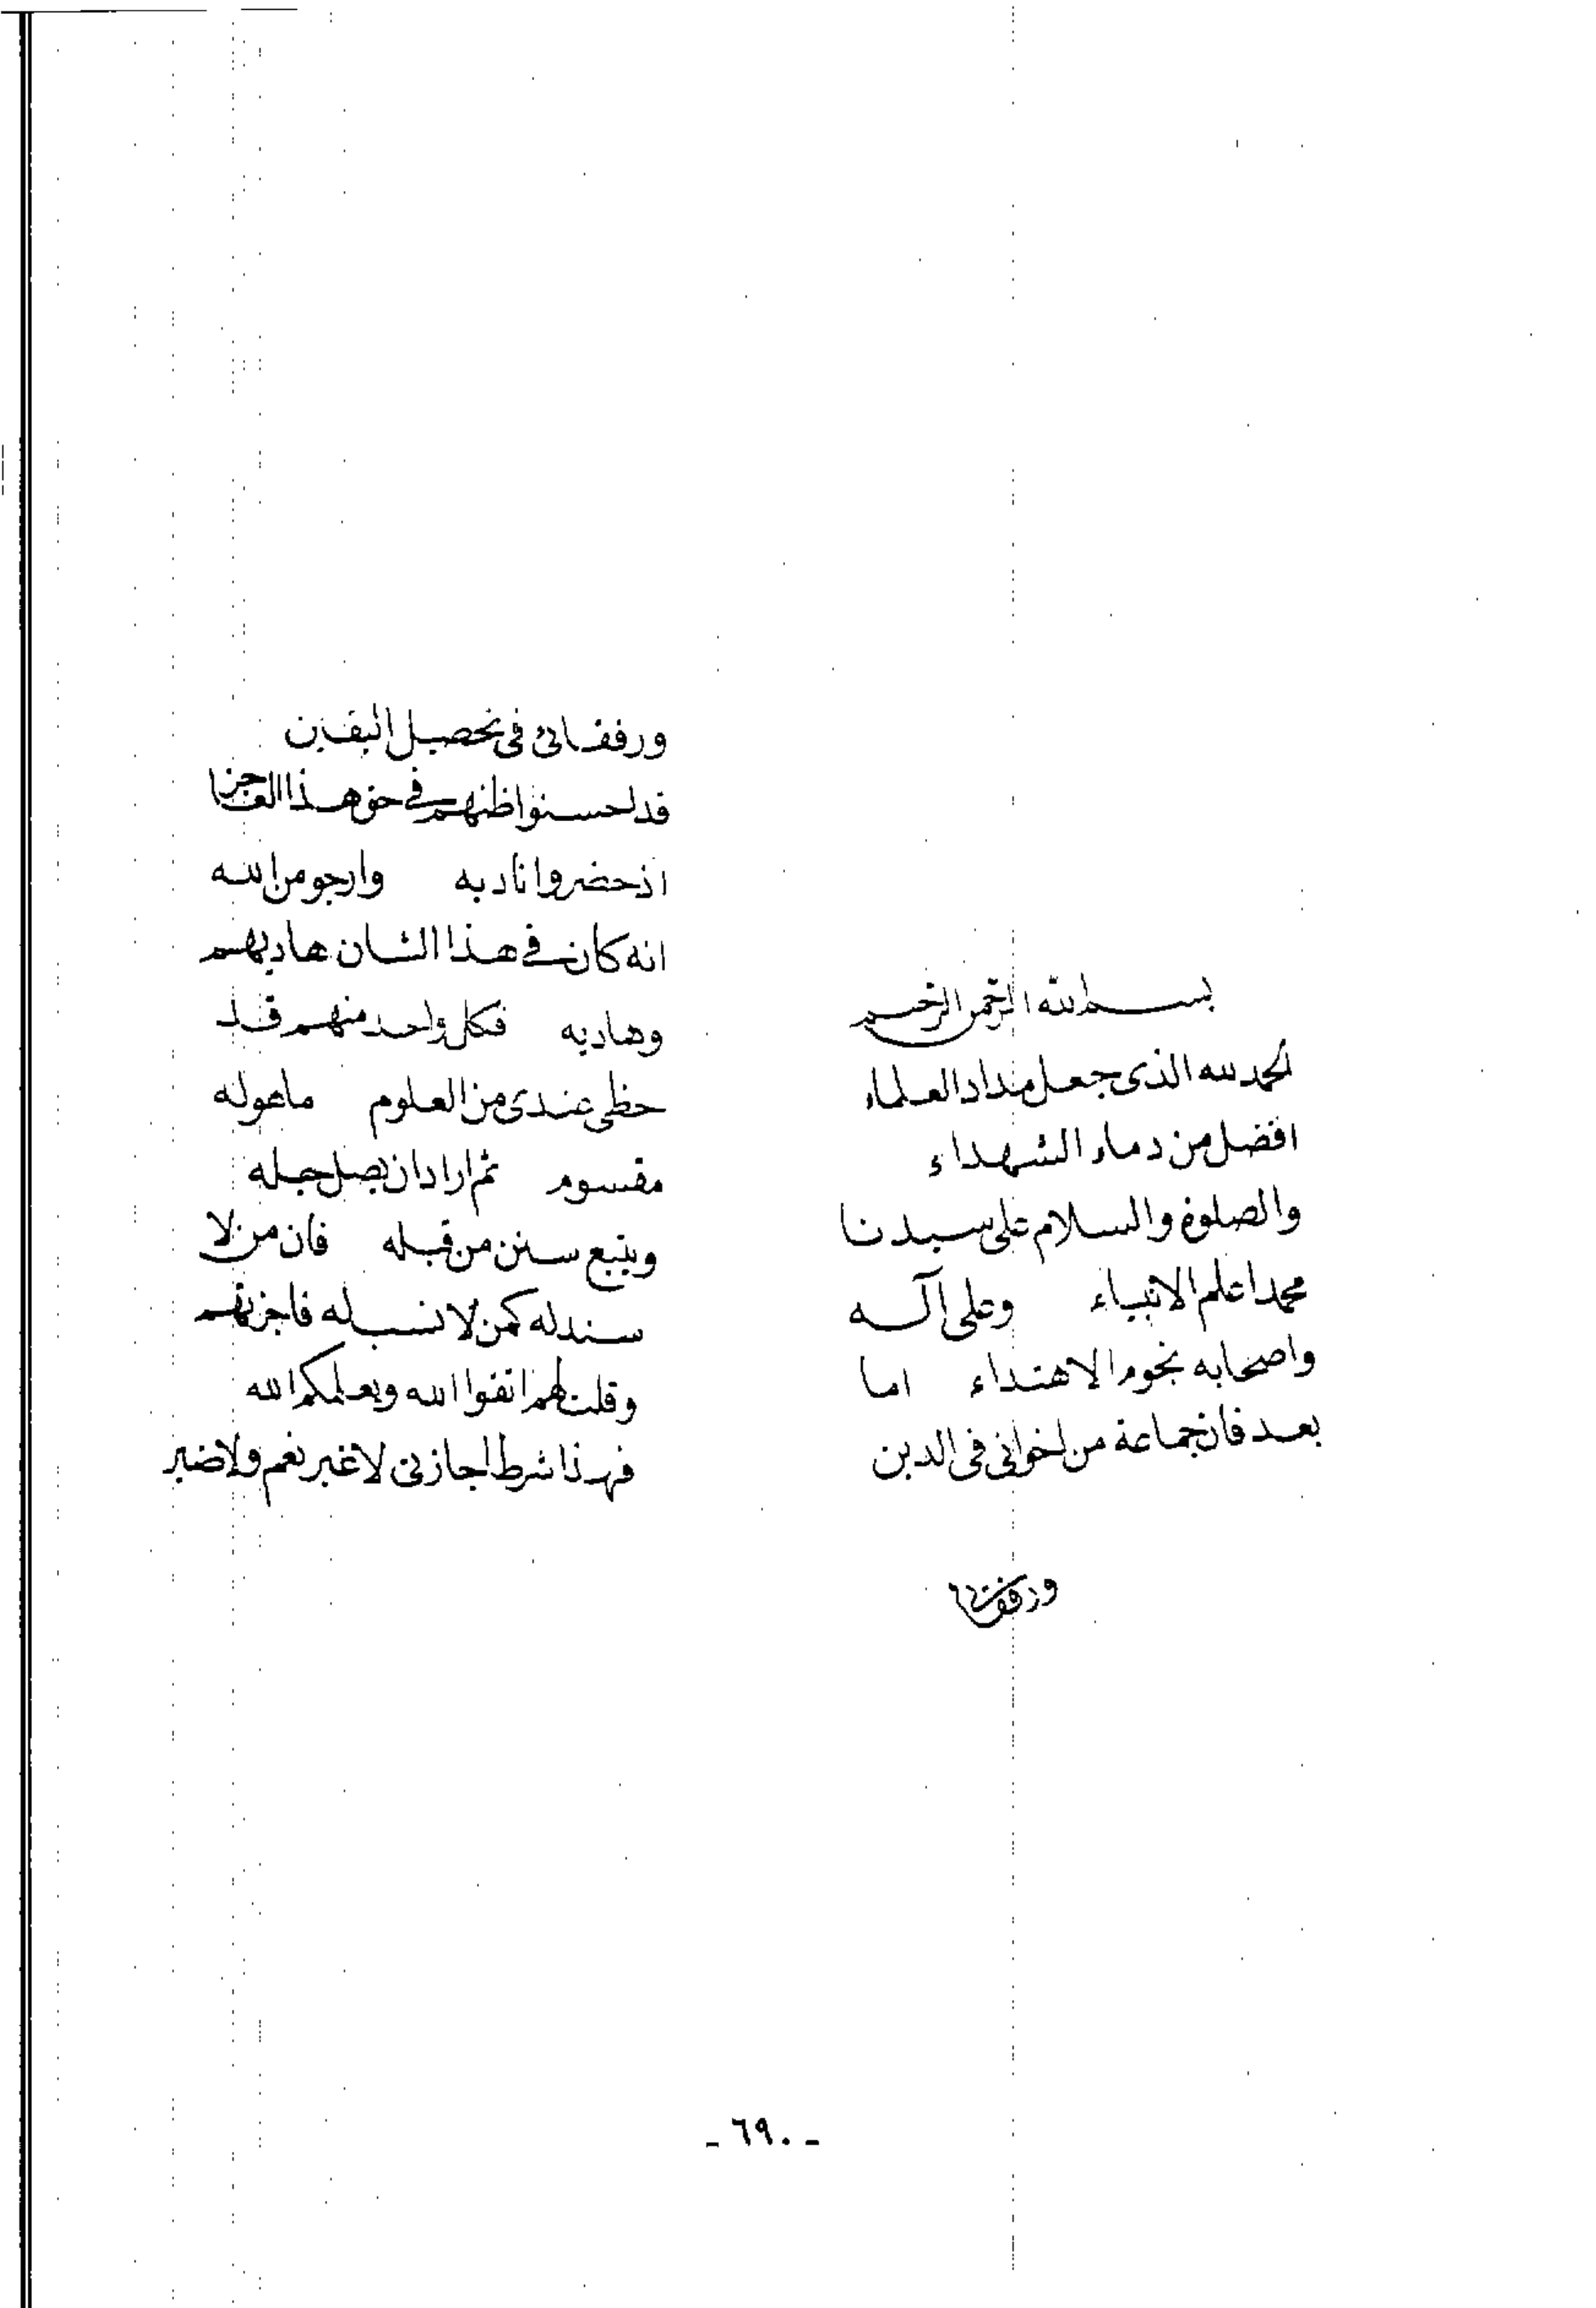 بسم الله الرحمن الرحيم
الحمد لله الذى جعل مداد العلماء
افضل من دماء الشهداء
والصلوة والسلام على سيدنا
محمد اعلم الانبياء وعلى آله
واصحابه نجوم الاهتداء اما
بعد فان جماعة من اخوانى فى الدين
ورفقائى
ورفقائى فى تحصيل اليقين
قد احسنوا ظنهم فى حق هذا العاجز
اذ حضروا ناديه وارجو من الله
انه كان فى هذا الشان هاديهم
وهاديه فكل واحد منهم قد
حظى عندى من العلوم ما هو له
مقسوم ثم اراد ان يصل حبله
ويتبع سنن من قبله فان من لا
سند له كمن لا نسب له فاجزتهم
وقلت لهم اتقوا الله ويعلمكم الله
فهذا شرط اجازتى لا غير نعم ولا ضير
- ٦٩٠ -